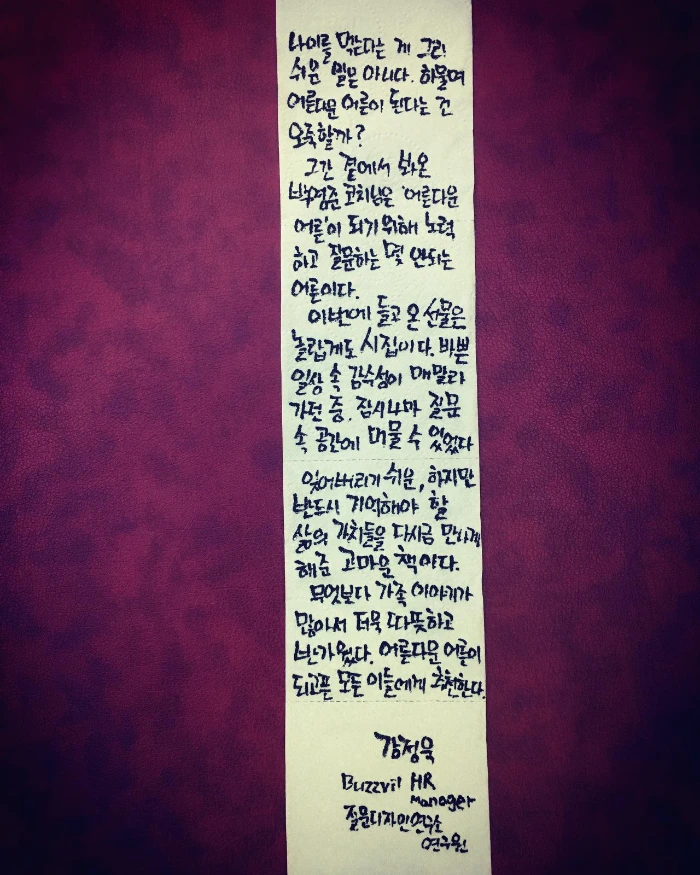 나이를 먹는다는 게 그리
쉬운 일은 아니다. 하물며
어른다운 어른이 된다는 건
오죽할까?
그간 곁에서 봐온
박영준 코치님은 '어른다운
어른'이 되기 위해 노력
하고 질문하는 몇 안되는
어른이다.
이번에 들고 온 선물은
놀랍게도 시집이다. 바쁜
일상 속 감수성이 메말라
가던 중, 잠시나마 질문
속 공간에 머물 수 있었다
잊어버리기 쉬운, 하지만
반드시 기억해야 할
삶의 가치들을 다시금 만나게
해준 고마운 책이다.
무엇보다 가족 이야기가
많아서 더욱 따뜻하고
반가웠다. 어른다운 어른이
되고픈 모든 이들에게 추천한다.
강정욱
Buzzvil HR
Manager
질문디자인연구소
연구원